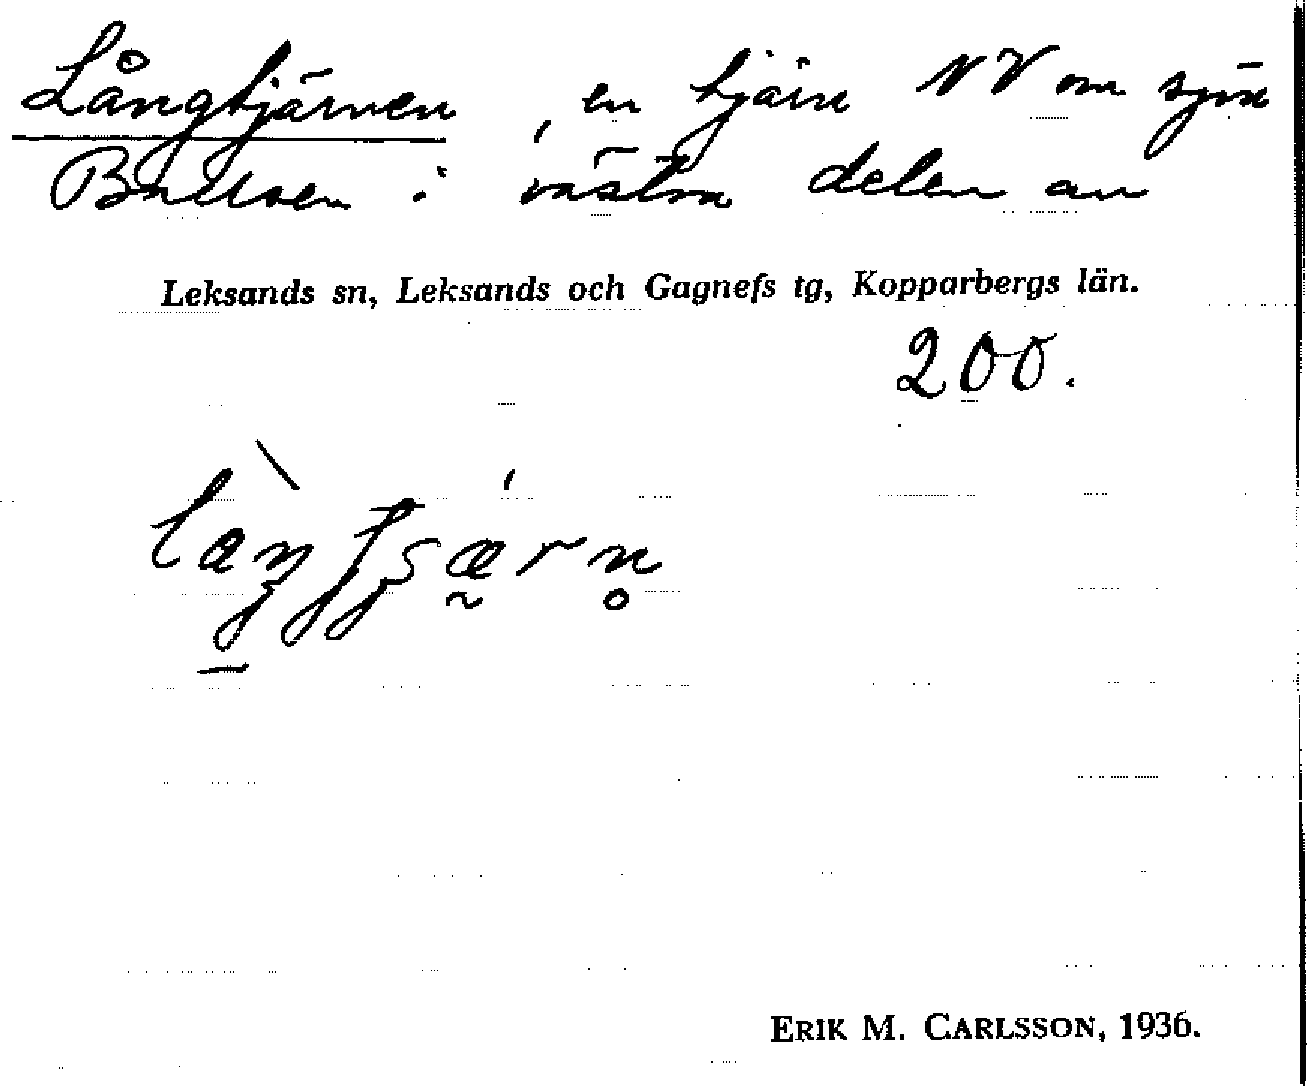 Långtjärnen, en tjärn NV om sjön
i västra delen av
Leksands sn, Leksands och Gagnefs tg, Kopparbergs län.
200.
ERIK M. CARLSSON, 1936.